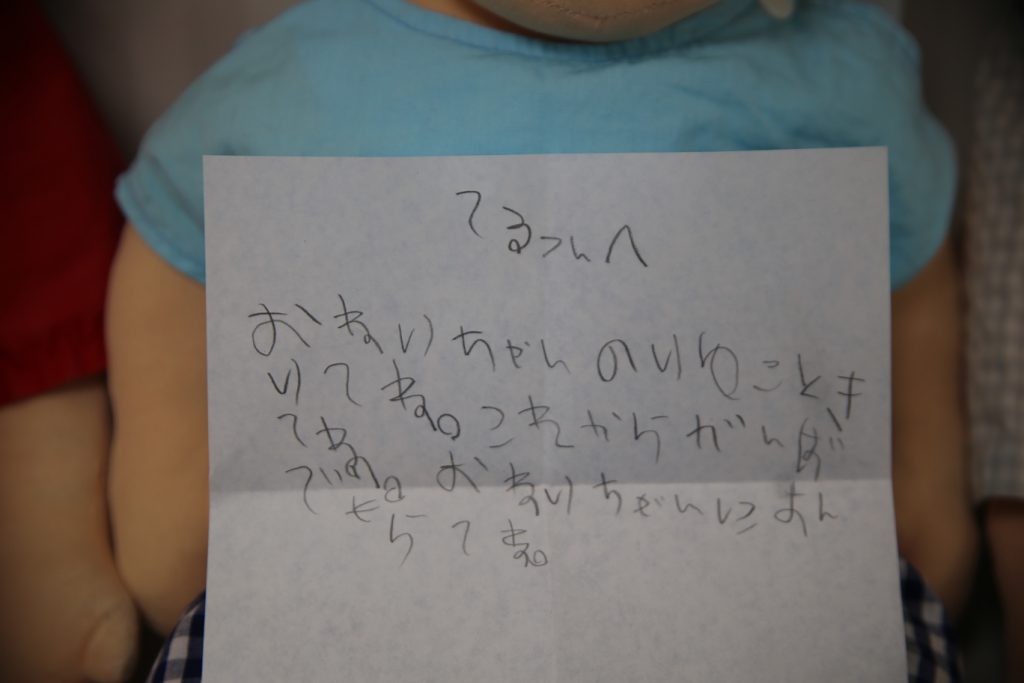 てるつんへ
おねいちゃんのりゆことき
いてね。これからがんば
てね。おねいちゃんにあん
でもらてね。